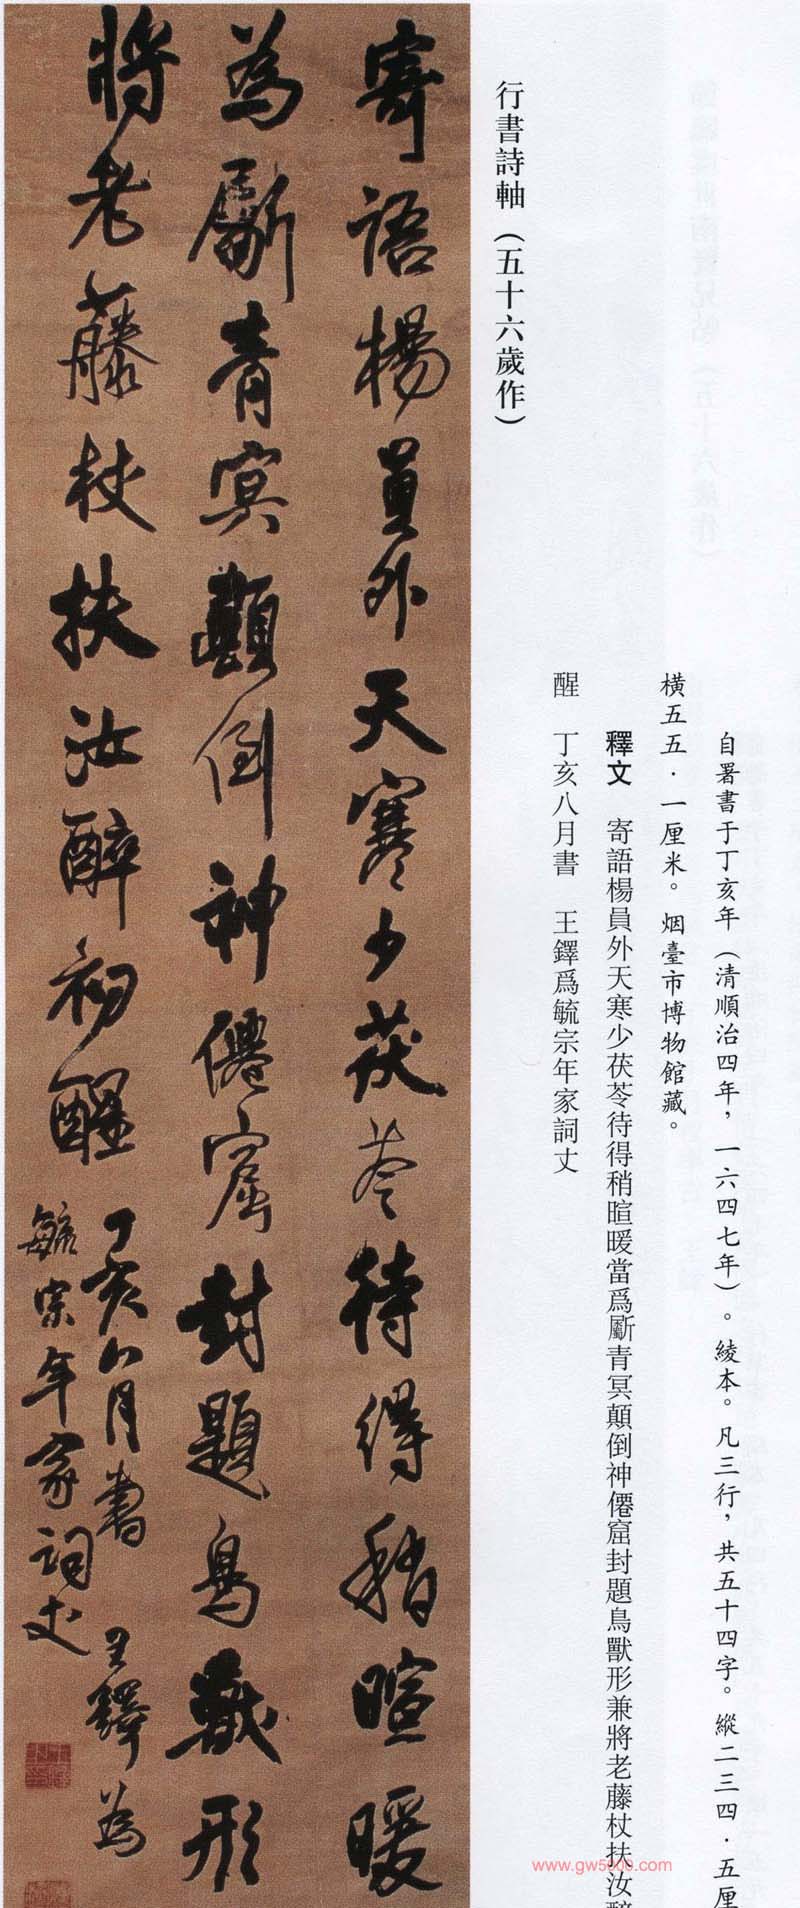 行書詩軸（五十六歲作）
自署書于丁亥年（清順治四年，一六四七年）。綾本。凡三行，共五十四字。縱二三四·五厘
橫五五·一厘米。烟臺市博物館藏。
釋文　寄語楊員外天寒少茯苓待得稍暄暖當爲斸青冥顛倒神僊窟封題鳥獸形兼將老藤杖扶汝醉
醒　丁亥八月書　王鐸爲毓宗年家詞丈
寄語楊員外天寒少茯苓待得稍暄暖
為斸青冥顛倒神僊窟封題鳥獸形
將老藤杖扶汝醉初醒
丁亥八月書　王鐸為
毓宗年家詞丈
www.gw5000.com